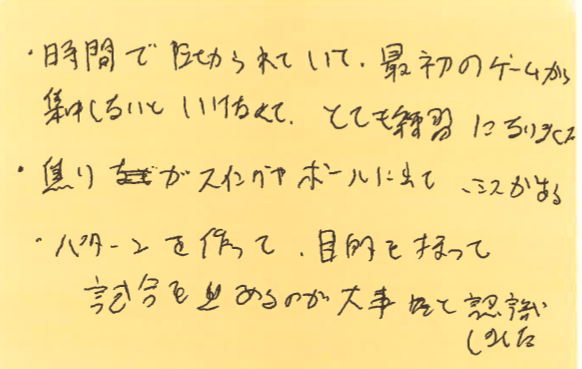 ・時間で区切られていて、最初のゲームから
集中しないといけなくて、とても練習になりました
・焦りがスイングやボールに出て ミスがある
・パターンを作って、目的を持って
試合を進めるのが大事だと認識
しました